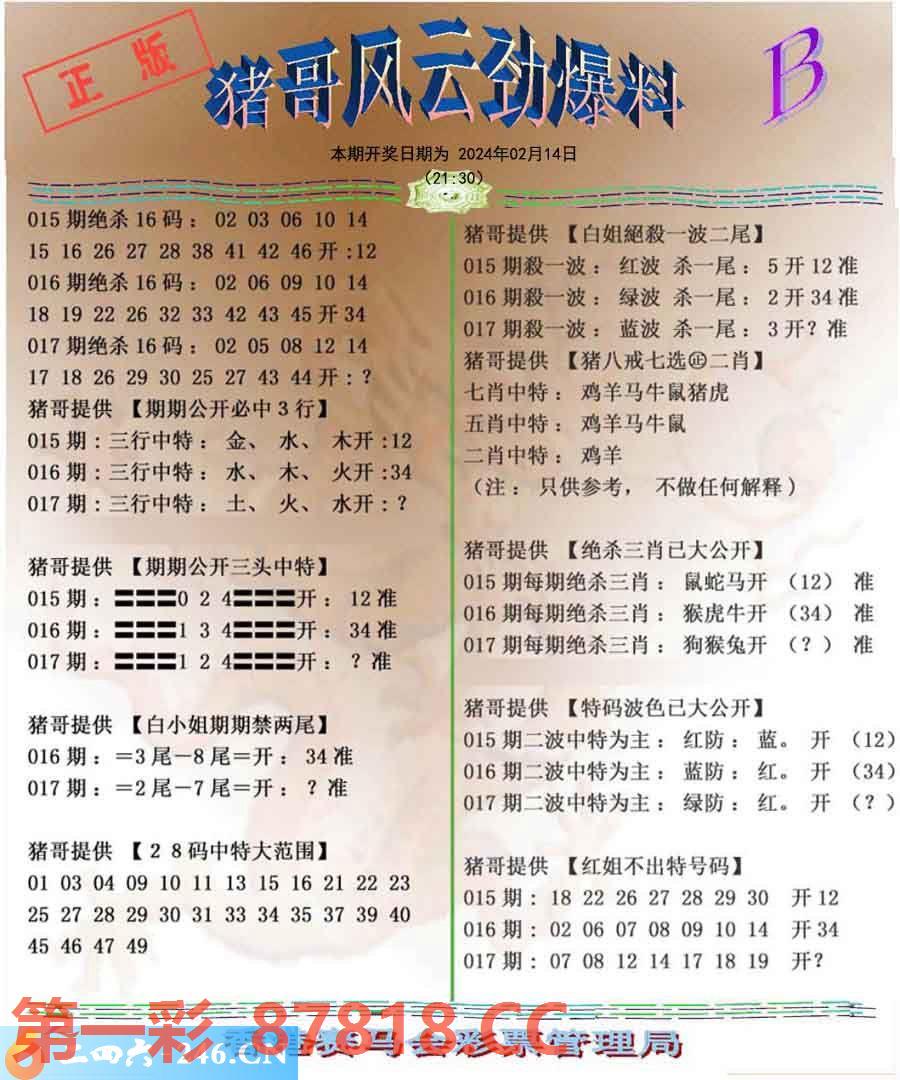 正版
猪哥风云劲爆料
B
本期开奖日期为 2024年02月14日
(21:30)
015期绝杀16码：02 03 06 10 14
15 16 26 27 28 38 41 42 46开:12
016期绝杀16码：02 06 09 10 14
18 19 22 26 32 33 42 43 45开34
017期绝杀16码：02 05 08 12 14
17 18 26 29 30 25 27 43 44开:？
猪哥提供【期期公开必中3行】
015期:三行中特：金、水、木开:12
016期:三行中特：水、木、火开:34
017期:三行中特：土、火、水开:？
猪哥提供【期期公开三头中特】
015期:〓〓〓0 2 4〓〓〓开：12准
016期:〓〓〓1 3 4〓〓〓开：34准
017期:〓〓〓1 2 4〓〓〓开：？准
猪哥提供【白小姐期期禁两尾】
016期:＝3尾－8尾＝开：34准
017期:＝2尾－7尾＝开：？准
猪哥提供【28码中特大范围】
01 03 04 09 10 11 13 15 16 21 22 23
25 27 28 29 30 31 33 34 35 37 39 40
45 46 47 49
猪哥提供【白姐絕殺一波二尾】
015期殺一波：红波 杀一尾：5开12准
016期殺一波：绿波 杀一尾：2开34准
017期殺一波：蓝波 杀一尾：3开？准
猪哥提供【猪八戒七选㊣二肖】
七肖中特：鸡羊马牛鼠猪虎
五肖中特：鸡羊马牛鼠
二肖中特：鸡羊
（注：只供参考，不做任何解释）
猪哥提供【绝杀三肖已大公开】
015期每期绝杀三肖：鼠蛇马开（12）准
016期每期绝杀三肖：猴虎牛开（34）准
017期每期绝杀三肖：狗猴兔开（？）准
猪哥提供【特码波色已大公开】
015期二波中特为主：红防：蓝。开（12）
016期二波中特为主：蓝防：红。开（34）
017期二波中特为主：绿防：红。开（？）
猪哥提供【红姐不出特号码】
015期：18 22 26 27 28 29 30 开12
016期：02 06 07 08 09 10 14 开34
017期：07 08 12 14 17 18 19 开？
第一彩 87818.CC
二四六 246.CN
赛马会彩票管理局